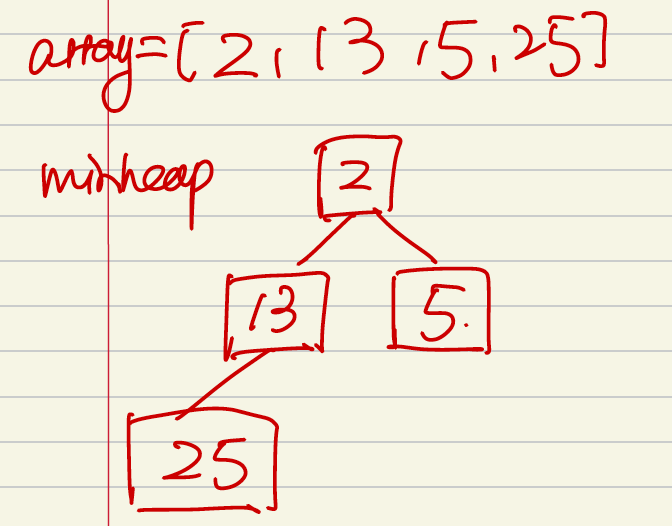 array=[2, 13, 5, 25]
minheap
2
13 5.
25